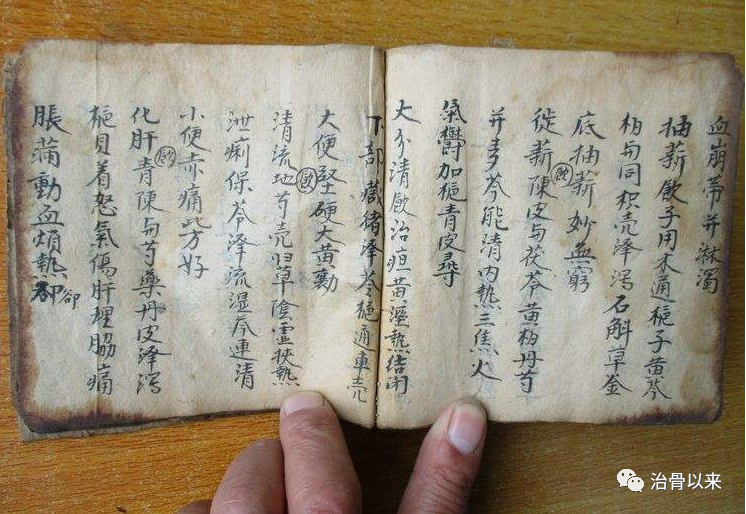 血崩帶并淋濁
抽薪飲子用木通梔子黄芩
柏与同枳壳泽泻石斛草金
底抽薪妙無窮
徙薪飲陳皮与茯苓黄柏丹芍
并麥芩能清内熱三焦火
氣鬱加梔青皮尋
大分清飲治疸黄溼熱结闭
下部藏猪泽苓梔通車壳
大便堅硬大黄勷
清流飲地芍壳归草陰虛挾熱
泄痢保苓泽流湿芩連清
小便赤痛皆好
化肝青陳与芍藥丹皮泽泻
梔貝着怒氣傷肝理脇痛
脹满動血煩熱卻
卻
治骨以来